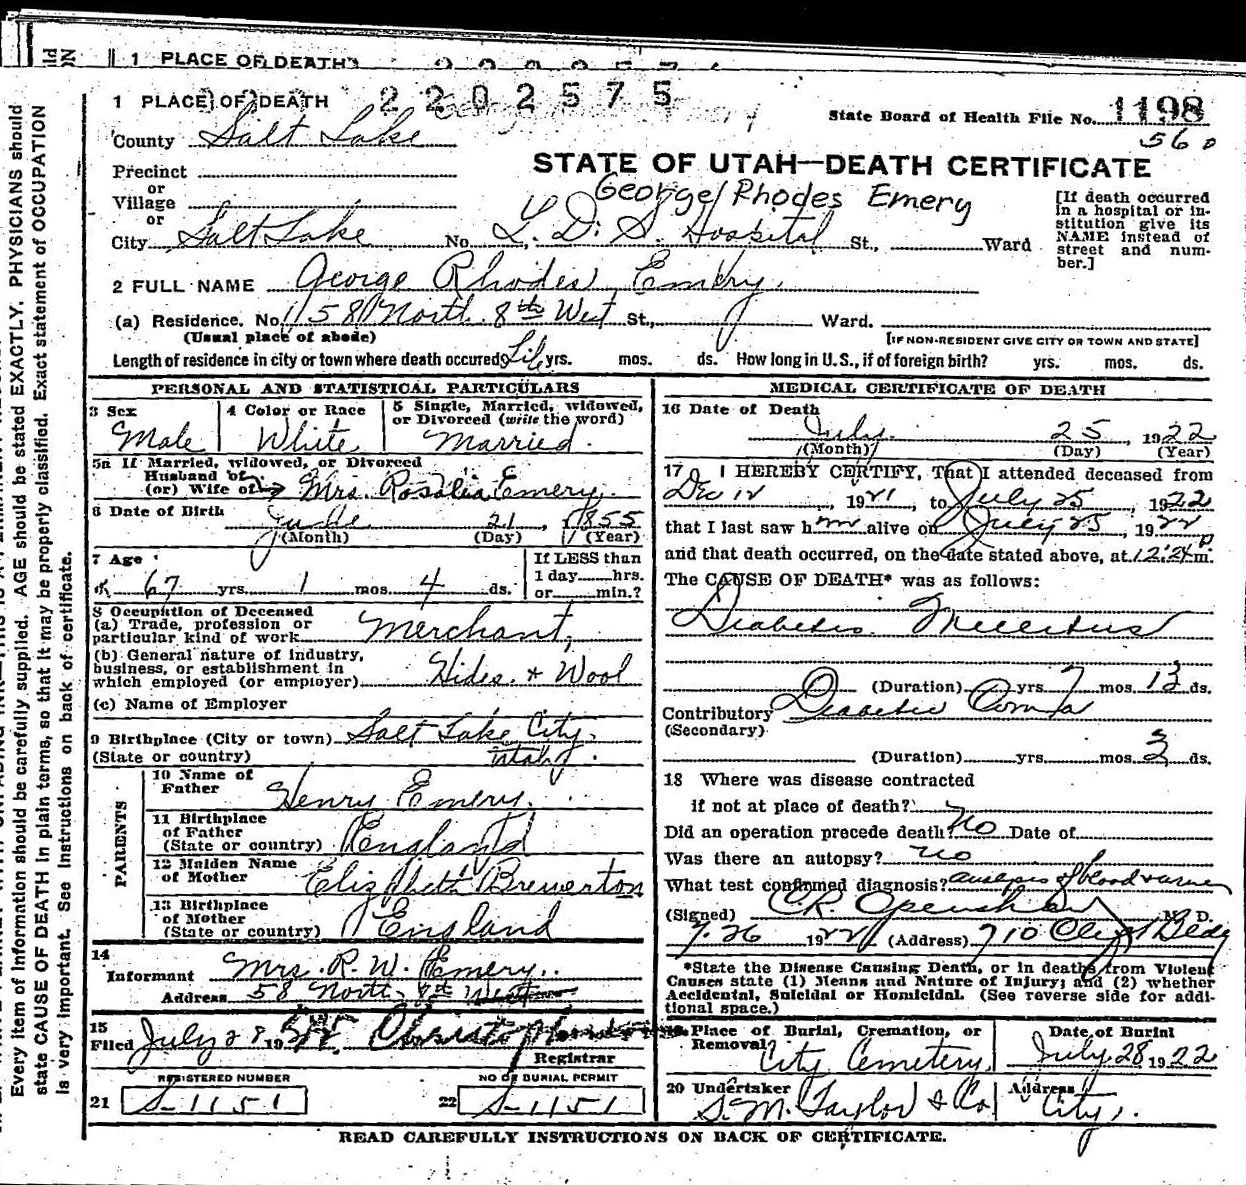 1 PLACE OF DEATH
2202575
1 PLACE OF DEATH
State Board of Health File No. 1198
560
County Salt Lake
STATE OF UTAH—DEATH CERTIFICATE
Precinct
or
Village
or
George Rhodes Emery
City Salt Lake No. L. D. S. Hospital St., Ward
[If death occurred in a hospital or institution give its NAME instead of street and number.]
2 FULL NAME George Rhodes Emery.
(a) Residence. No. 158 North 8th West St., Ward.
(Usual place of abode)
[IF NON-RESIDENT GIVE CITY OR TOWN AND STATE]
Length of residence in city or town where death occured Life yrs. mos. ds. How long in U. S., if of foreign birth? yrs. mos. ds.
PERSONAL AND STATISTICAL PARTICULARS
3 Sex
Male
4 Color or Race
White
5 Single, Married, widowed, or Divorced (write the word)
Married.
5a If Married, widowed, or Divorced
Husband of
(or) Wife of Mrs. Rosalia Emery.
6 Date of Birth
June 21, 1855
(Month) (Day) (Year)
7 Age
67 yrs. 1 mos. 4 ds.
If LESS than
1 day......hrs.
or......min.?
8 Occupation of Deceased
(a) Trade, profession or
particular kind of work Merchant,
(b) General nature of industry,
business, or establishment in
which employed (or employer) Hides. & Wool
(c) Name of Employer
9 Birthplace (City or town) Salt Lake City.
(State or country) Utah.
PARENTS
10 Name of
Father Henry Emery.
11 Birthplace
of Father
(State or country) England
12 Maiden Name
of Mother Elizabeth Brewerton
13 Birthplace
of Mother
(State or country) England
14
Informant Mrs. R. W. Emery.
Address 58 North 8th West
15
Filed July 28 19
Registrar
REGISTERED NUMBER
21 S-1151
NO OF BURIAL PERMIT
22 S-1151
MEDICAL CERTIFICATE OF DEATH
16 Date of Death
July 25, 1922
(Month) (Day) (Year)
17 I HEREBY CERTIFY, That I attended deceased from
Dec 12, 1921, to July 25, 1922
that I last saw him alive on July 25, 1922
and that death occurred, on the date stated above, at 12:24 P m.
The CAUSE OF DEATH* was as follows:
Diabetes Mellitus
(Duration) yrs. 7 mos. 13 ds.
Contributory Diabetic Coma
(Secondary)
(Duration) yrs. mos. 3 ds.
18 Where was disease contracted
if not at place of death?
Did an operation precede death? No Date of
Was there an autopsy? no
What test confirmed diagnosis? analysis of blood & urine
(Signed) C.R. Openshaw M. D.
7.26 1922 (Address) 710 Clift Bldg
*State the Disease Causing Death, or in deaths from Violent
Causes state (1) Means and Nature of Injury; and (2) whether
Accidental, Suicidal or Homicidal. (See reverse side for addi-
tional space.)
19 Place of Burial, Cremation, or
Removal?
City Cemetery
Date of Burial
July 28 1922
20 Undertaker
S. M. Taylor & Co.
Address
City.
READ CAREFULLY INSTRUCTIONS ON BACK OF CERTIFICATE.
Every item of Information should be carefully supplied. AGE should be stated EXACTLY. PHYSICIANS should
state CAUSE OF DEATH in plain terms, so that it may be properly classified. Exact statement of OCCUPATION
is very important. See instructions on back of certificate.